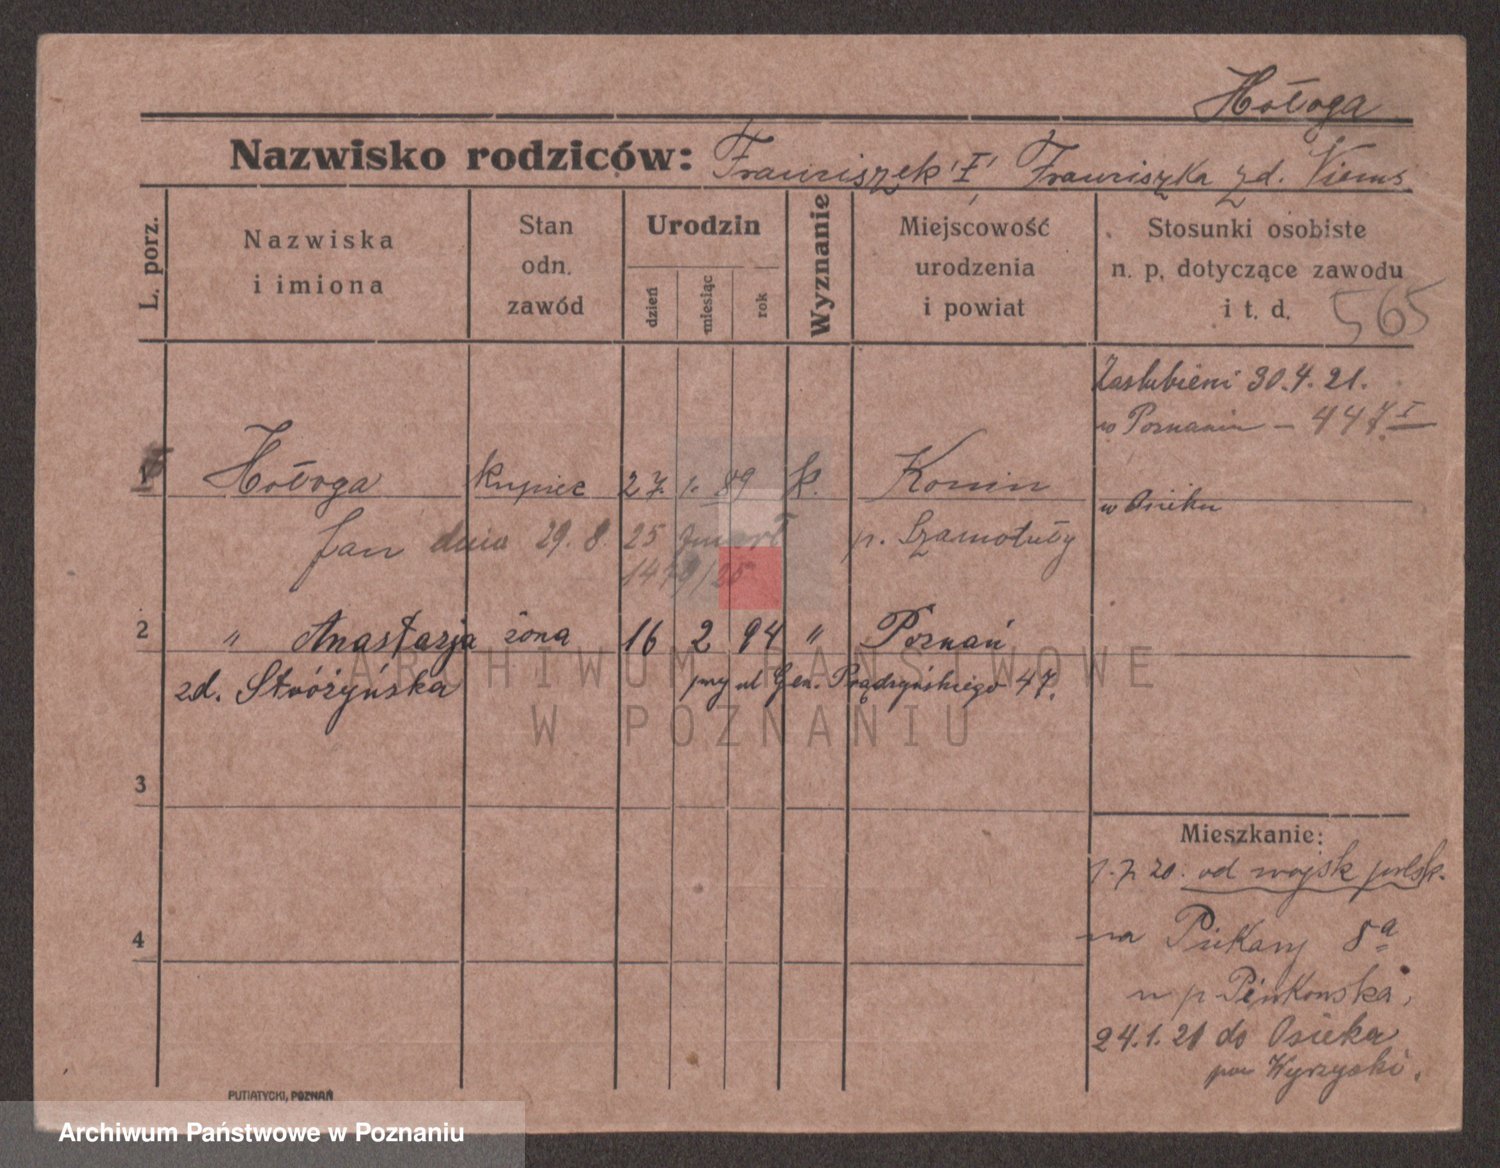 Hołoga
Nazwisko rodziców: Franciszek 'I' Franciszka zd.
L. porz.
Nazwiska
i imiona
Stan
odn.
zawód
Urodzin
dzień
miesiąc
rok
Wyznanie
Miejscowość
urodzenia
i powiat
Stosunki osobiste
n. p. dotyczące zawodu
i t. d. 565
Zaślubieni 30.4.21.
w Poznaniu — 447 I
1 Hołoga kupiec 27. 1. 89 k. Konin
w Osieku
Jan dnia 29. 8. 25 zmarł p. Szamotuły
1479/25
2 " Anastazja żona 16 2 94 " Poznań
zd. Stróżyńska przy ul Gen. Prądzyńskiego 47.
ARCHIWUM PAŃSTWOWE
W POZNANIU
3
Mieszkanie:
1.7.20. od wojsk polsk.
na Piekary 8a
4
u p. Pienkowska,
24.1.21 do Osieka
pow Wyrzyski.
PUTIATYCKI, POZNAŃ
Archiwum Państwowe w Poznaniu